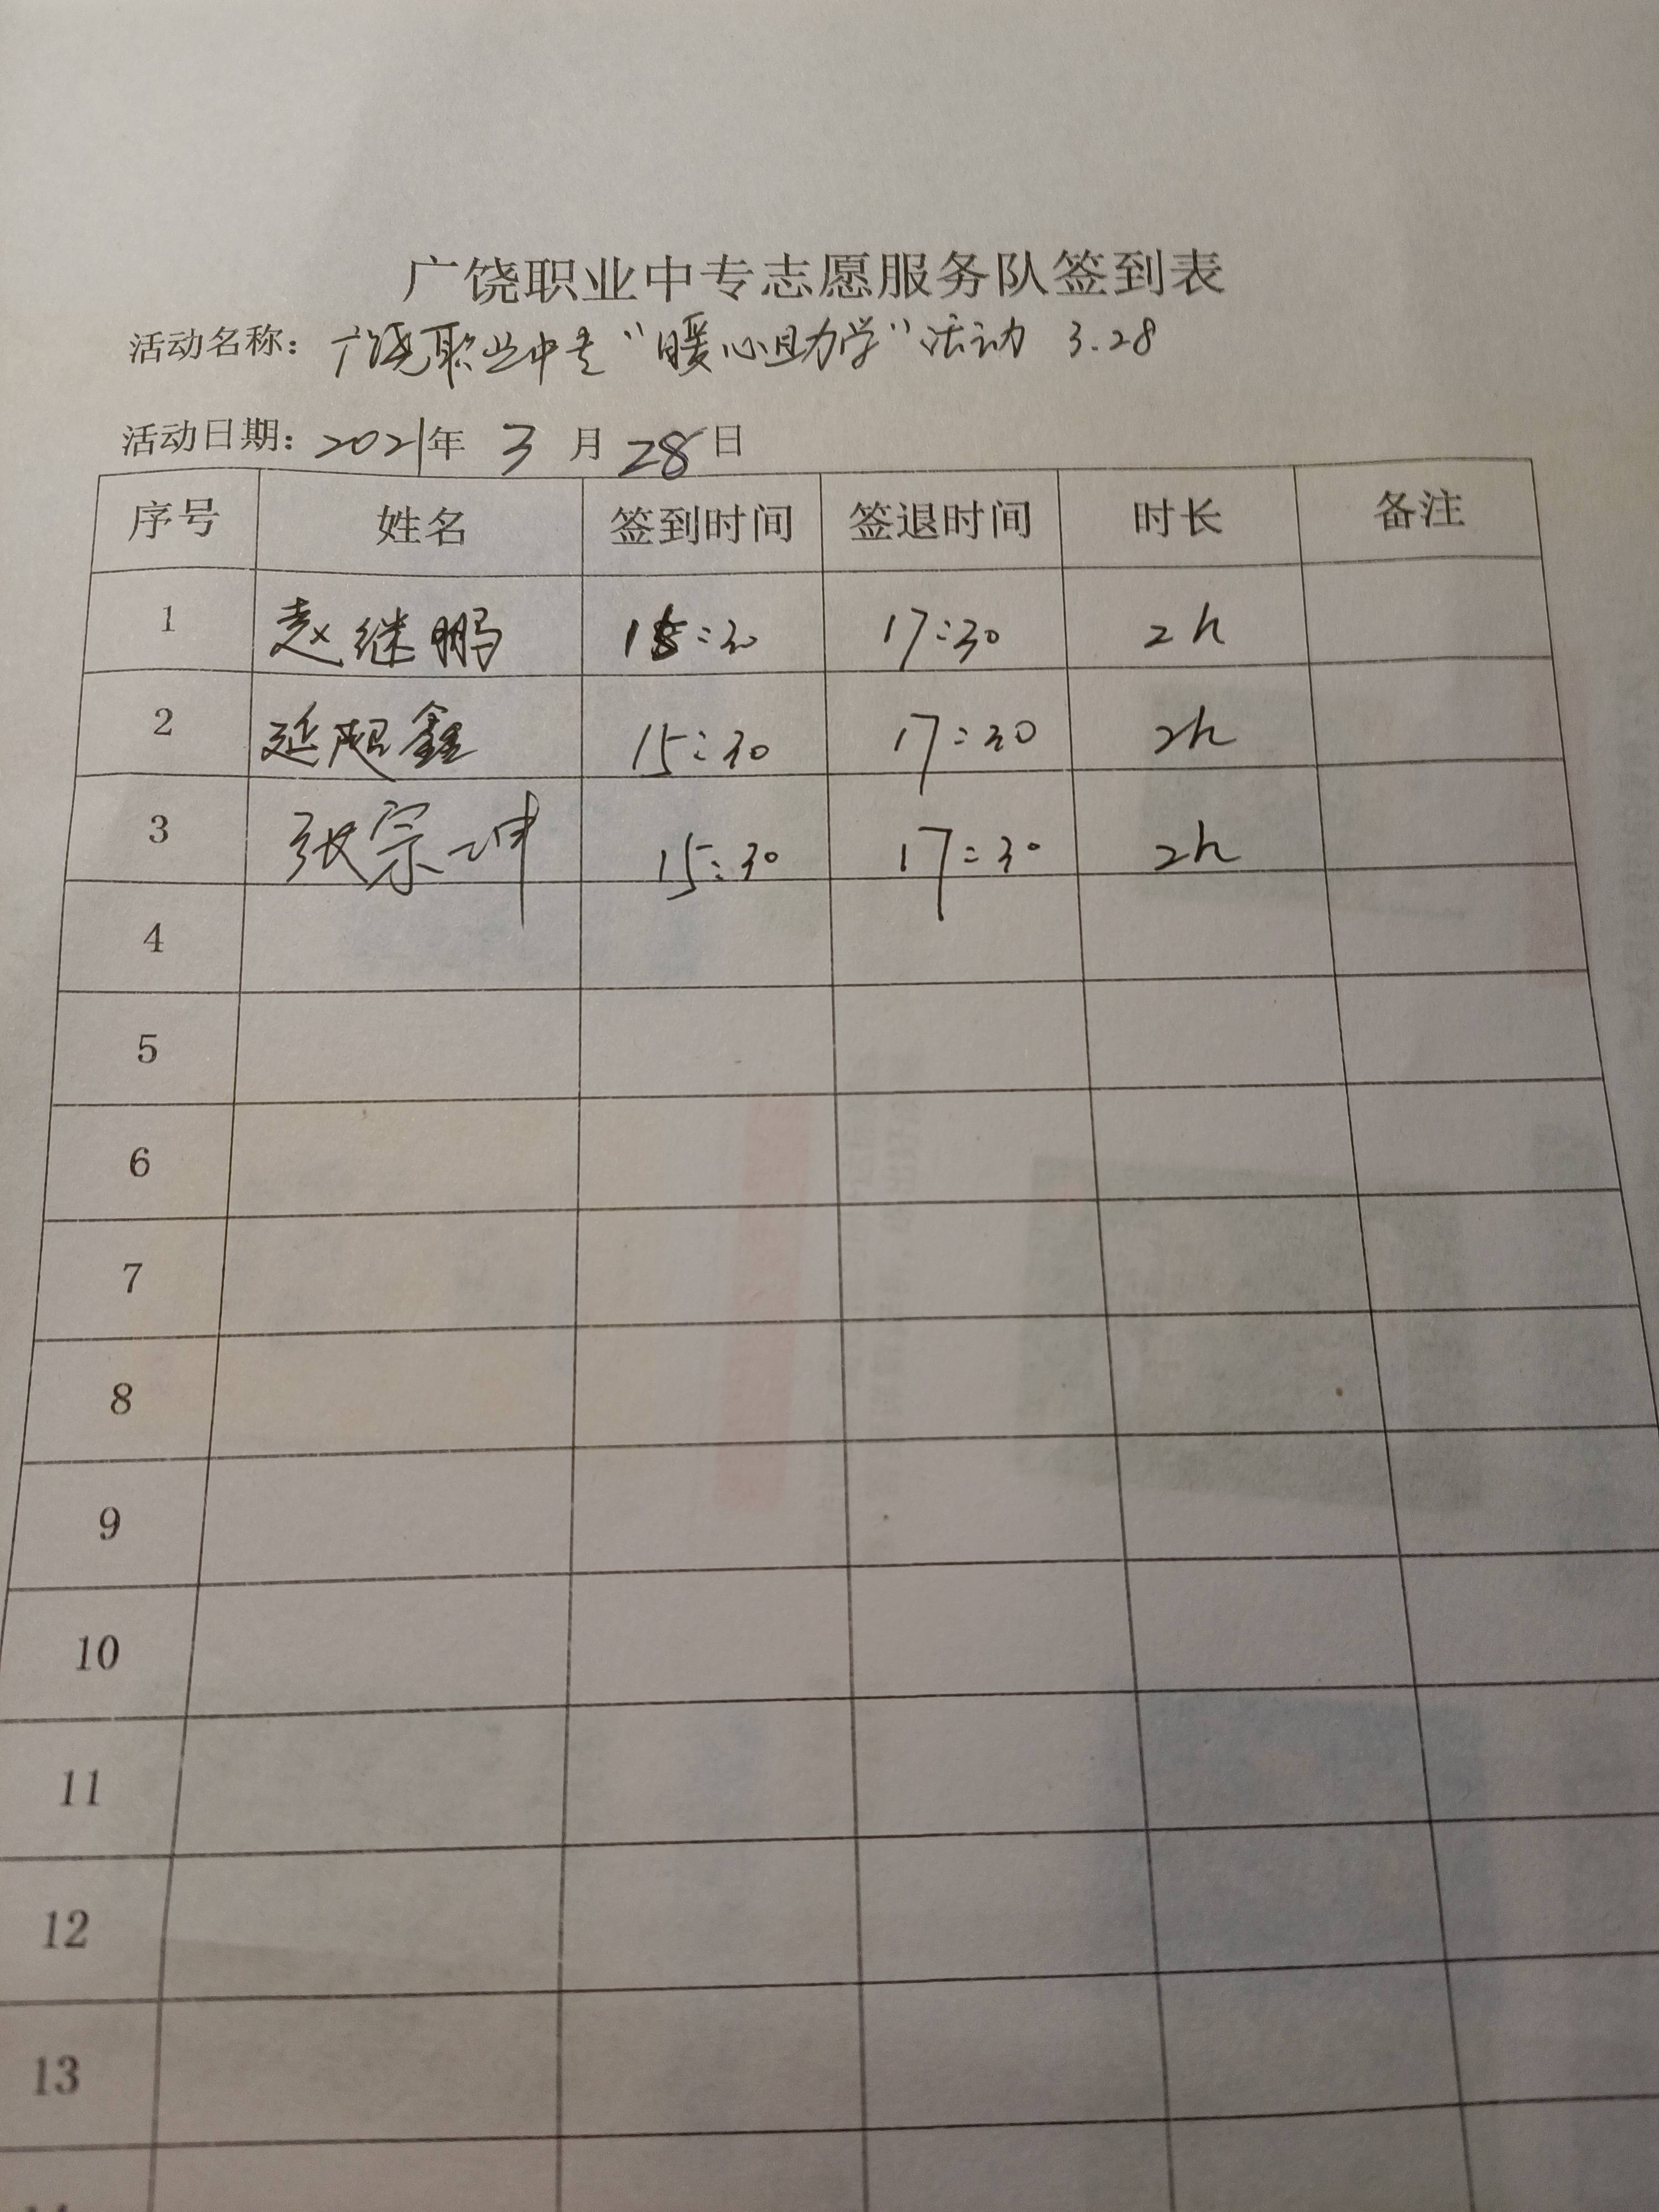 广饶职业中专志愿服务队签到表
活动名称：广饶职业中专“暖心助学”活动 3.28
活动日期：2021年 3 月 28 日
序号 姓名 签到时间 签退时间 时长 备注
1 赵继鹏 15:30 17:30 2h
2 延超鑫 15:30 17:30 2h
3 张宗坤 15:30 17:30 2h
4
5
6
7
8
9
10
11
12
13